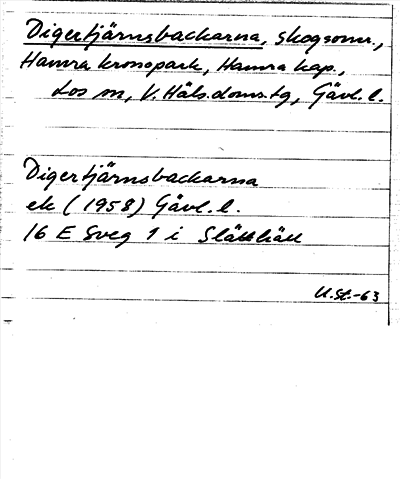 Digertjärnsbackarna, skogsomr.,
Hamra kronopark, Hamra kap.,
Los sn, V. Häls. doms.tg, Gävl. l.
Digertjärnsbackarna
ek (1958) Gävl. l.
16 E Sveg 1 i
U.St.-63